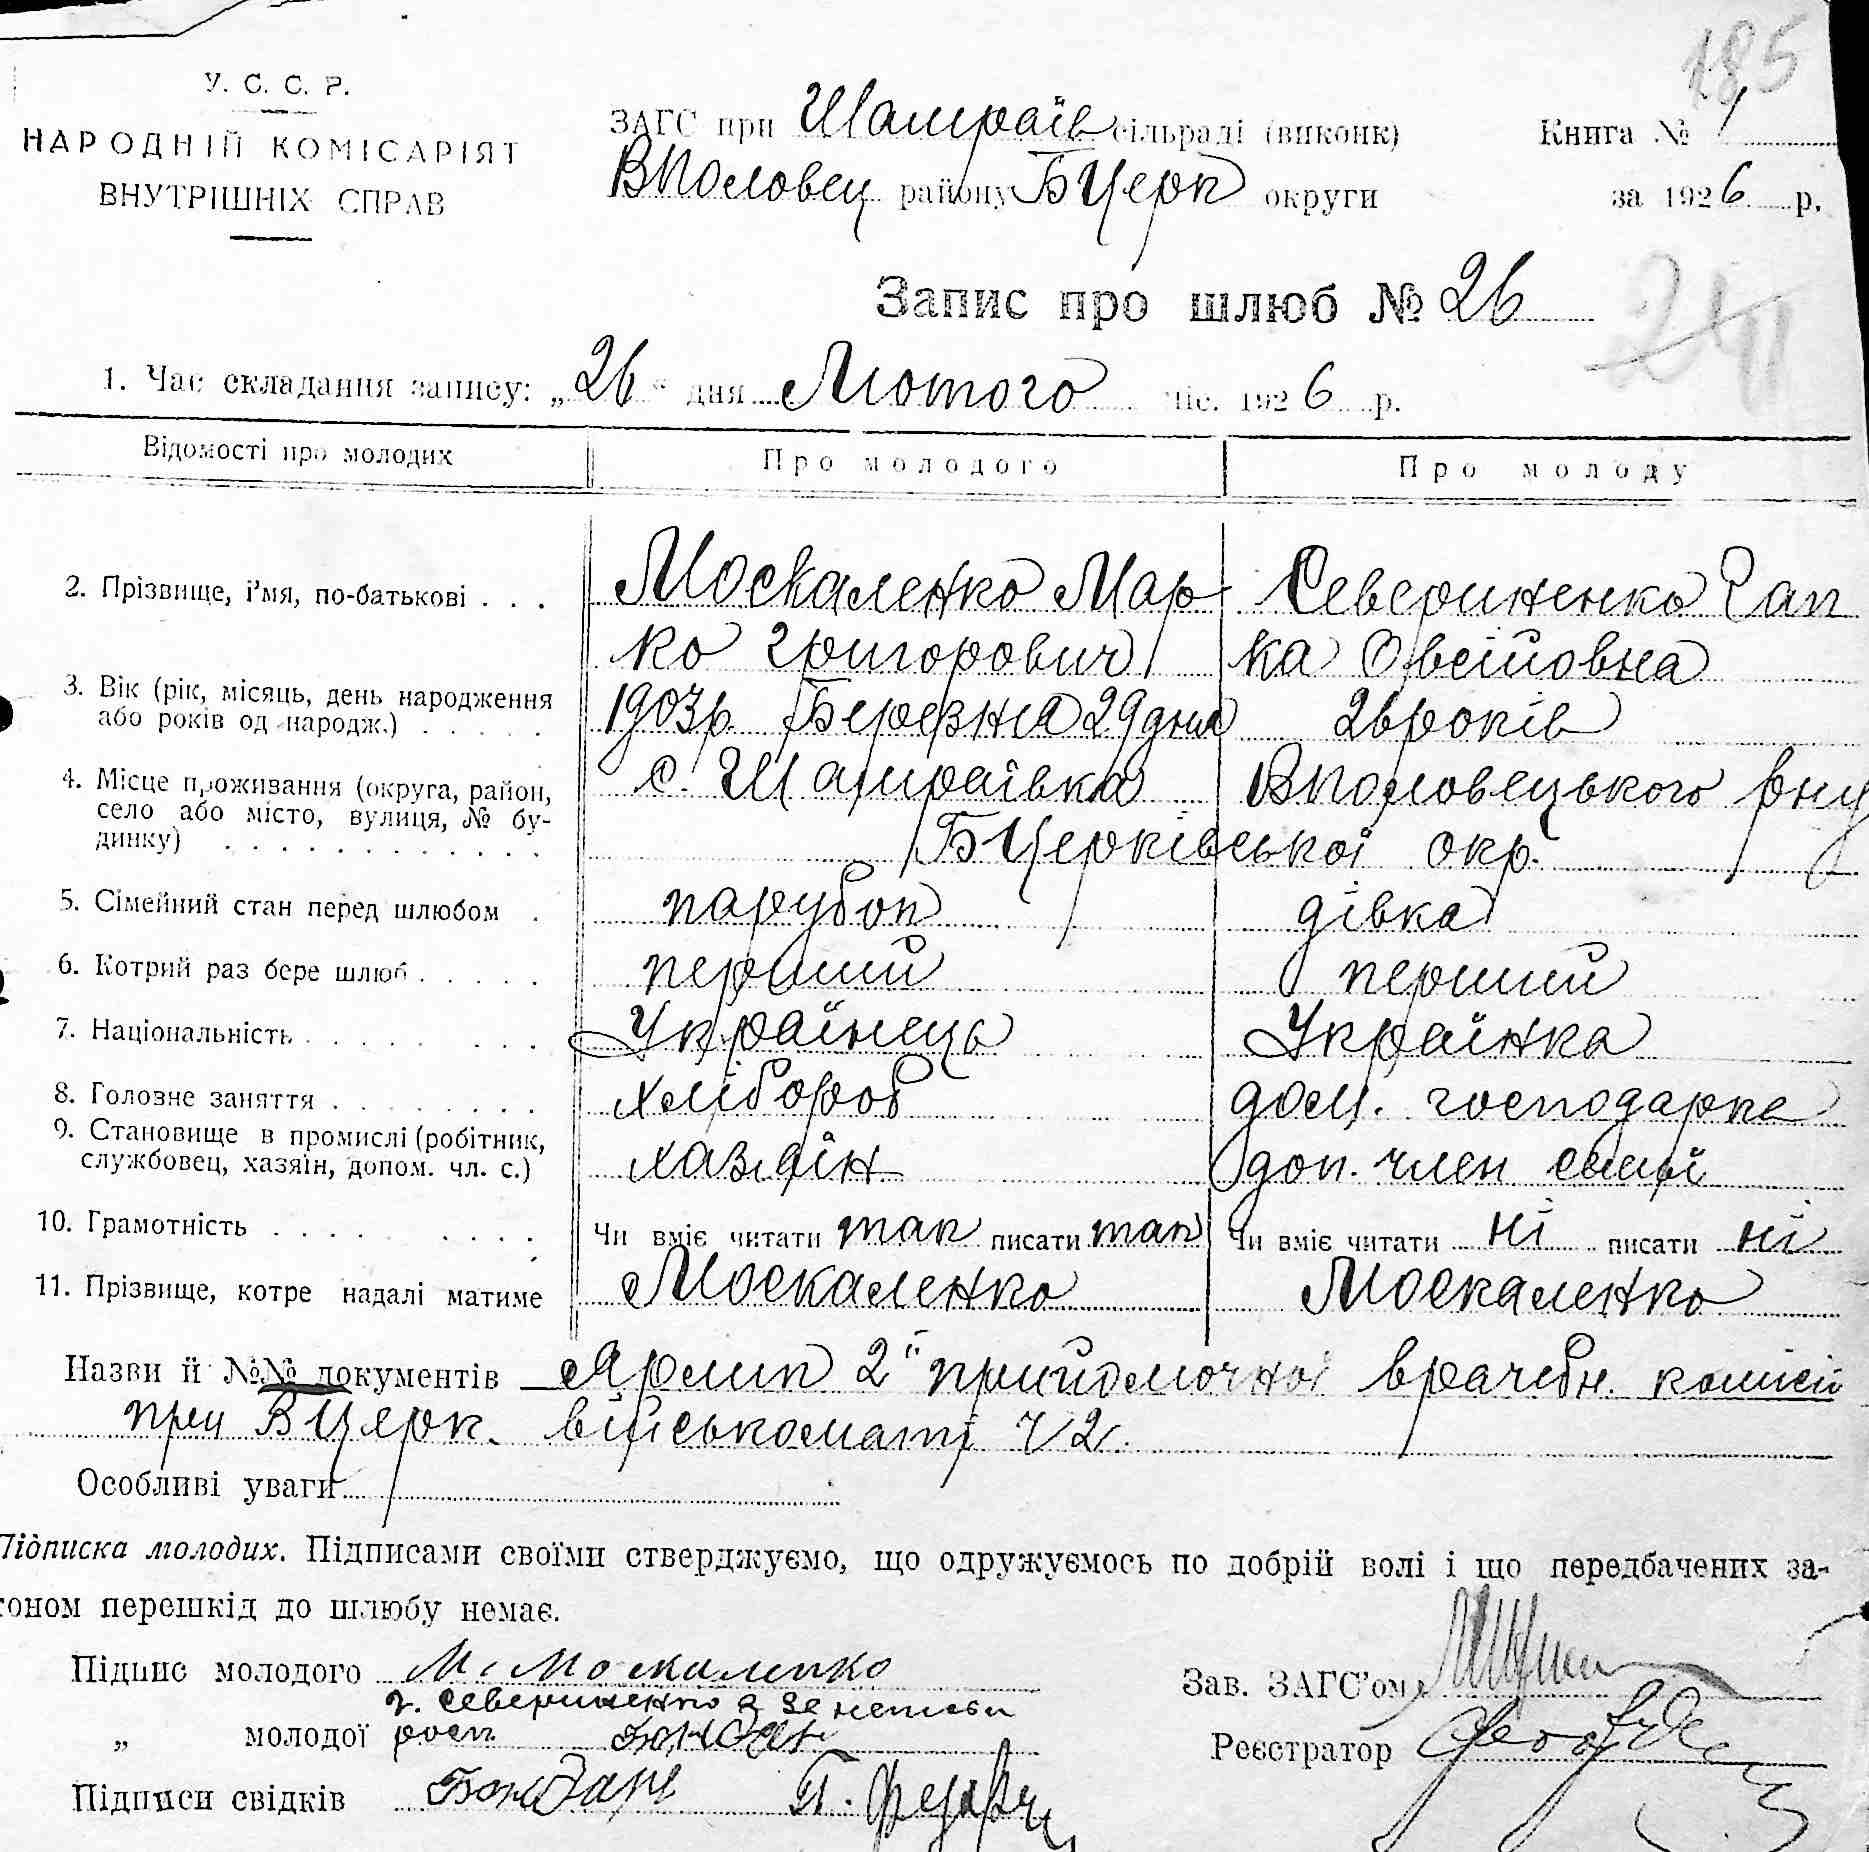 185
У. С. С. Р.
НАРОДНІЙ КОМІСАРІЯТ
ВНУТРІШНІХ СПРАВ
ЗАГС при Шамраїв сільраді (виконк) Книга № 1
ВПоловец району БЦерк округи за 1926 р.
Запис про шлюб № 26
1. Час складання запису: „26“ дня Лютого міс. 1926 р.
Відомості про молодих Про молодого Про молоду
2. Прізвище, і'мя, по-батькові . . . Москаленко Мар Севериненко Гап
ко Григорович ка Овсійовна
3. Вік (рік, місяць, день народження
або років од народж.) . . . . . 1903р. Березня 29 дня 26 років
4. Місце проживання (округа, район,
село або місто, вулиця, № бу-
динку) . . . . . . . . . . . . с. Шамраївка ВПоловецького рну
БЦерківської окр.
5. Сімейний стан перед шлюбом . парубок дівка
6. Котрий раз бере шлюб . . . . . перший перший
7. Національність . . . . . . . . Українець Українка
8. Головне заняття . . . . . . . . хлібороб дом. господарка
9. Становище в промислі (робітник,
службовец, хазяїн, допом. чл. с.) хазяїн доп. член семї
10. Грамотність . . . . . . . . . Чи вміє читати так писати так Чи вміє читати ні писати ні
11. Прізвище, котре надалі матиме Москаленко Москаленко
Назви й №№ документів Ярлик 2ї прийомочної врачебн. комісії
при БЦерк. військоматі Ч2.
Особливі уваги
Підписка молодих. Підписами своїми стверджуємо, що одружуємось по добрій волі і що передбачених за-
коном перешкід до шлюбу немає.
Підпис молодого М Москаленко Зав. ЗАГС'ом
г. Севериненко а за неписм
„ молодої росп Бондар Реєстратор
Підписи свідків Бондарь П.